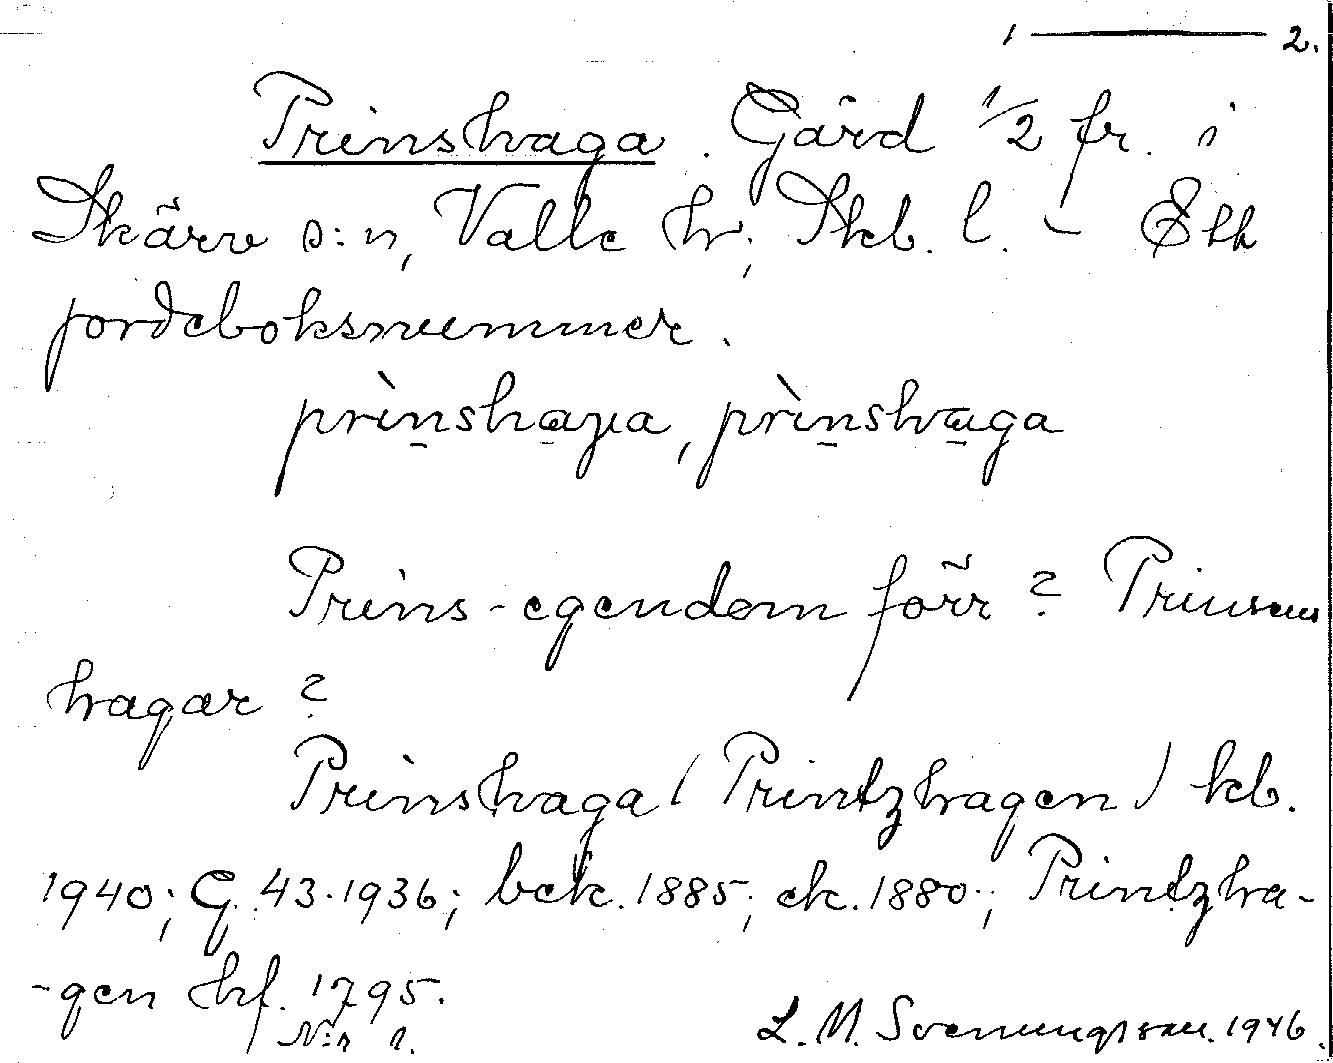 1 ——— 2.
Prinshaga. Gård 1/2 fr. i
Skärv s:n, Valle hd; Skb. l. – Ett
jordeboksnummer.
prìnshaga, prìnshaga
Prins-egendom förr? Prinsens
hagar?
Prinshaga (Printzhagen) kb.
1940; G. 43.1936; bck. 1885; ck. 1880; Printzha-
-gen hf. 1795.
N:r 1.
L. M. Svenungsson. 1946.